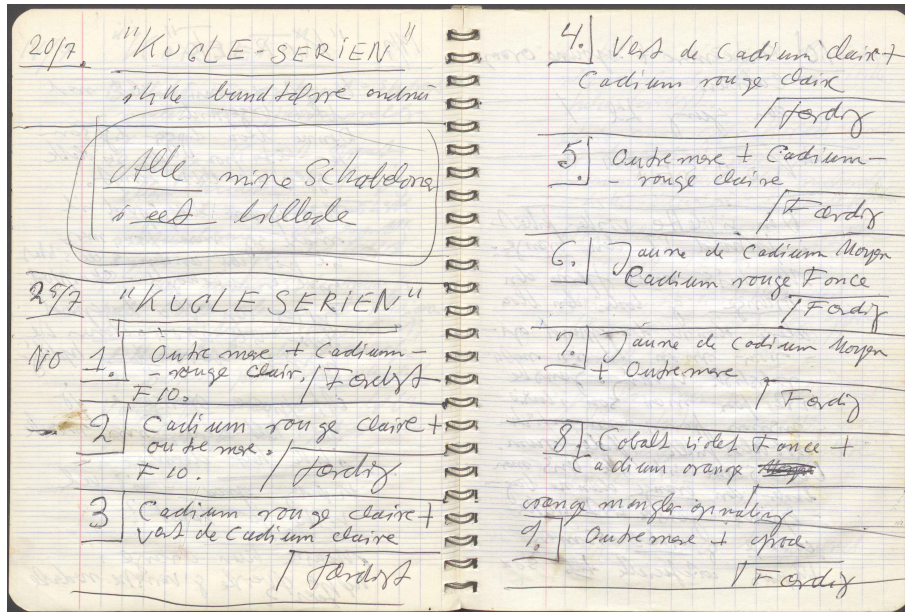 20/7. "KUGLE-SERIEN"
ikke bundfarve
Alle mine Schabeloner
i eet billede
25/7 "KUGLE SERIEN"
NO 1. Outre mere + Cadium-
- rouge clair. / Færdigt
F 10.
2 Cadium rouge claire +
outre mere.
F 10. / Færdig
3 Cadium rouge claire +
vert de cadium claire
/ Færdigt
4. Vert de Cadium claire +
Cadium rouge claire
/ Færdig
5. Outre mere + Cadium-
- rouge claire
/ Færdig
6. Jaune de Cadium Moyen
Cadium rouge Fonce
/ Færdig
7. Jaune de Cadium Moyen
+ Outre mere
/ Færdig
8. Cobalt violet Fonce +
Cadium orange
orange mangler opmaling
9. Outre mere +
/ Færdig